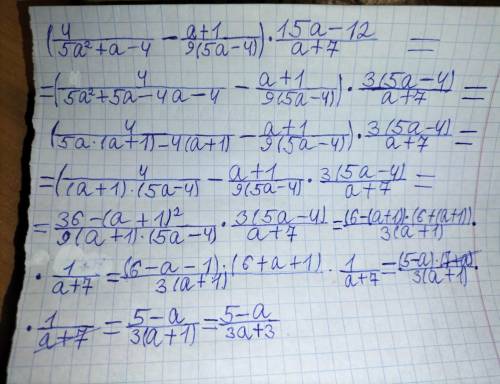 (4/(5a²+a-4) - (a+1)/(9(5a-4))) · (15a-12)/(a+7) =
=(4/(5a²+5a-4a-4) - (a+1)/(9(5a-4))) · 3(5a-4)/(a+7) =
(4/(5a·(a+1)-4(a+1)) - (a+1)/(9(5a-4))) · 3(5a-4)/(a+7) =
=(4/((a+1)·(5a-4)) - (a+1)/(9(5a-4)) · 3(5a-4)/(a+7) =
= (36-(a+1)²)/(9(a+1)·(5a-4)) · 3(5a-4)/(a+7) = (6-(a+1)·(6+(a+1))/(3(a+1)) ·
· 1/(a+7) = (6-a-1)·(6+a+1)/(3(a+1)) · 1/(a+7) = (5-a)·(7+a)/(3(a+1)) ·
· 1/(a+7) = (5-a)/(3(a+1)) = (5-a)/(3a+3)